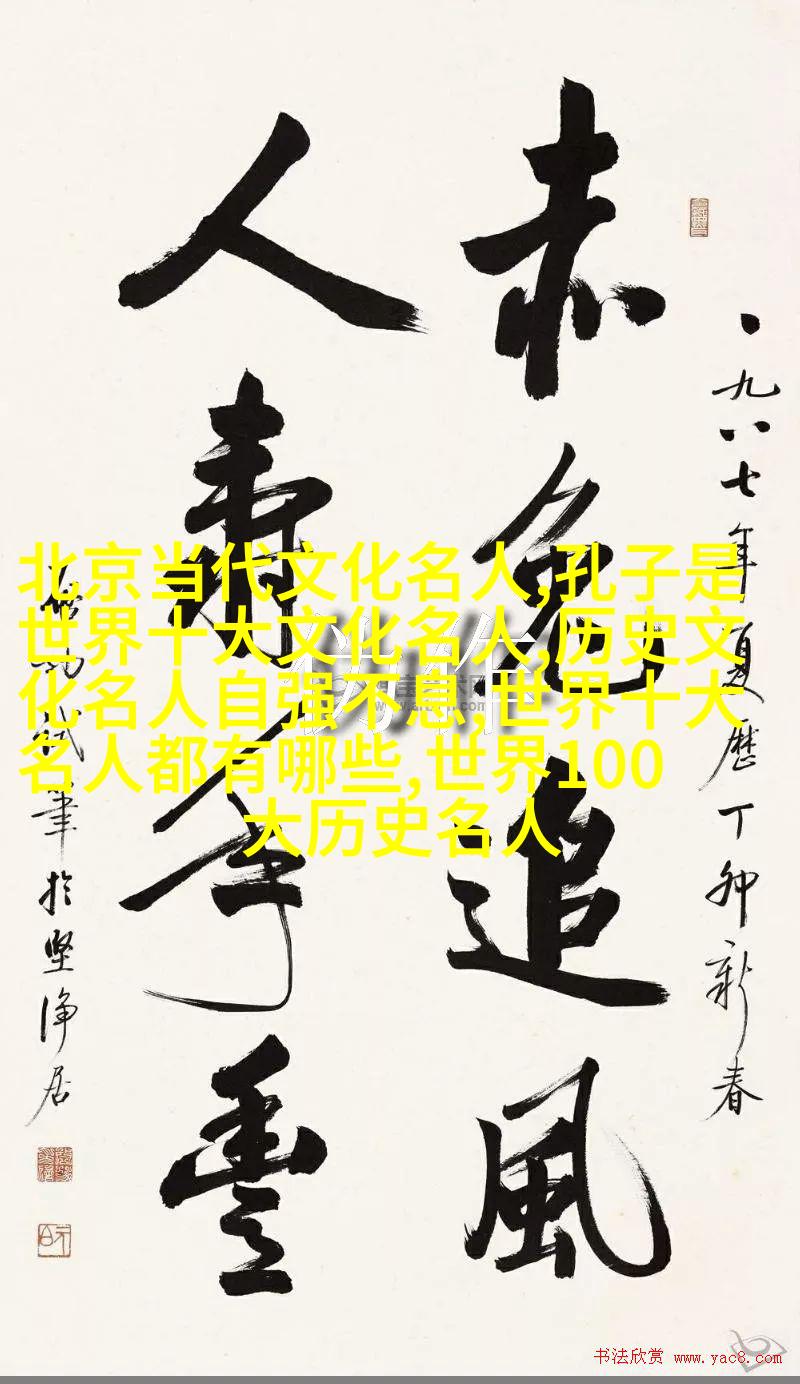 一九八七年夏歷丁卯新春
赤兔追風
人壽年豐
啟功試筆於堅淨居
北京当代文化名人,孔子是
世界十大文化名人,历史文
化名人自强不息,世界十大
名人都有哪些,世界100
大历史名人
书法欣赏 www.yac8.com